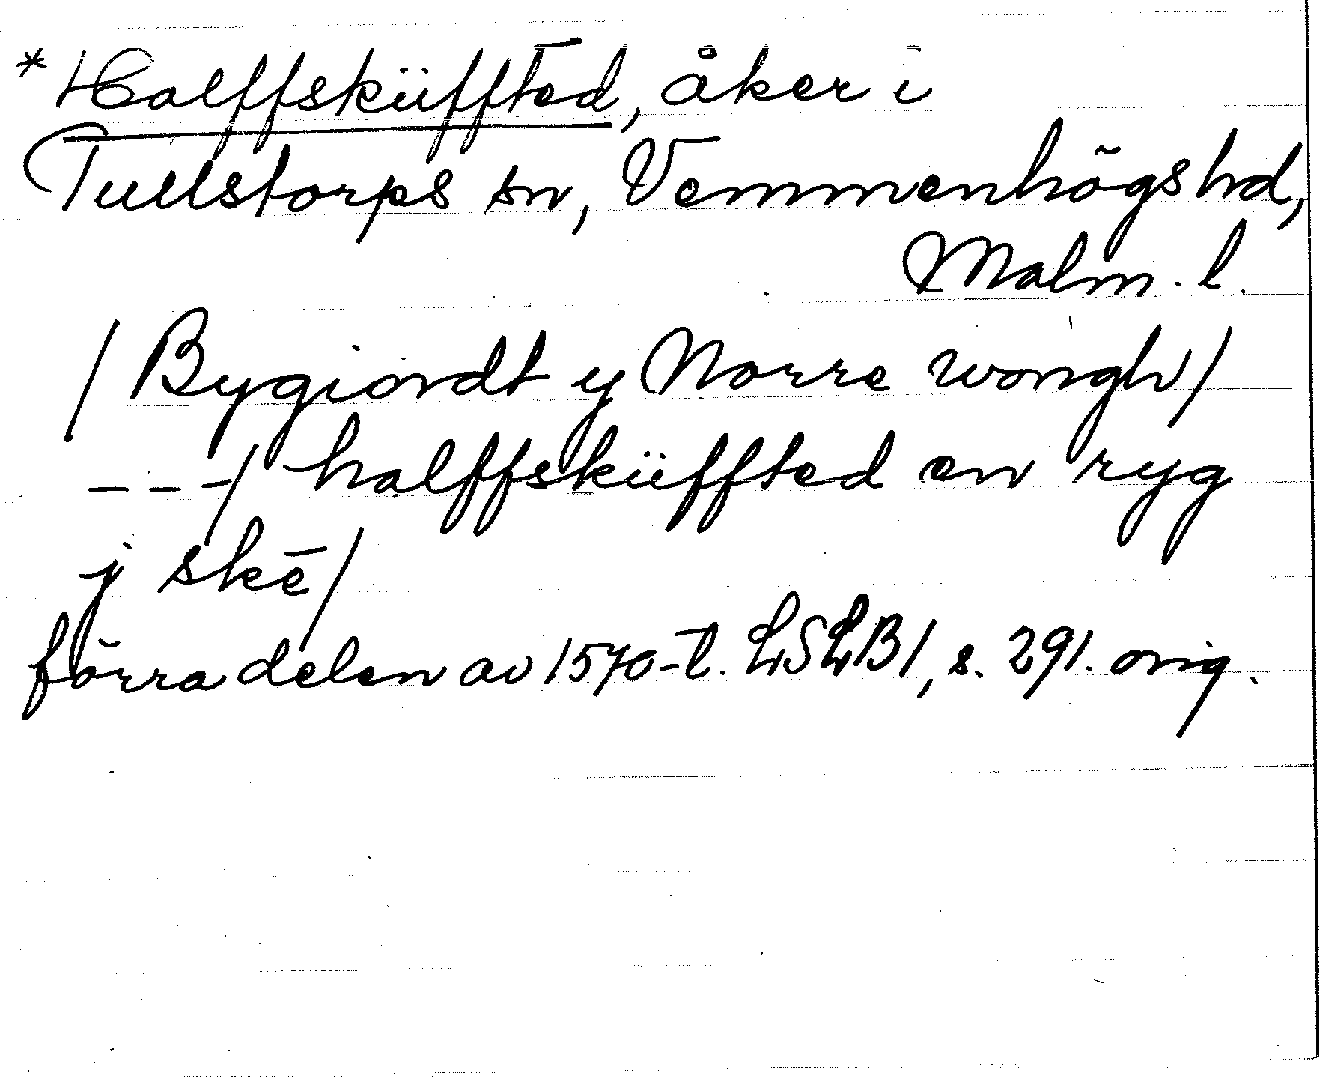 *Halffsküffted, åker i
Tullstorps sn, Vemmenhögs hd,
Malm. l.
/ Bygiordt y Norre wongh /
--- / halffsküffted en ryg
j skē /
förra delen av 1570-t. LSLB1, s. 291. orig.